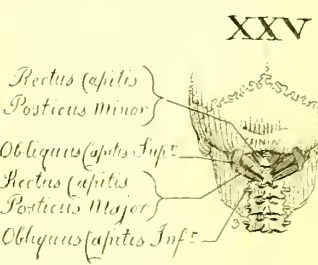 XXV
Rectus Capitis
Posticus Minor
Obliquus Capitis Supr.
Rectus Capitis
Posticus Major
Obliquus Capitis Infr.